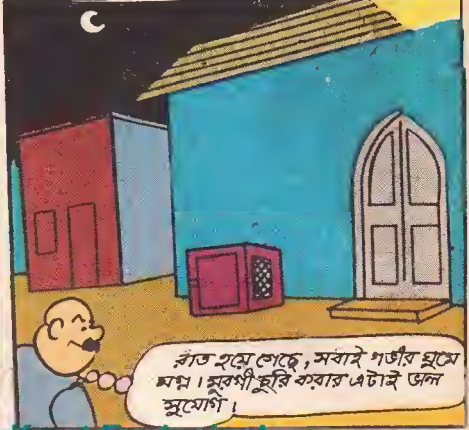 রাত হয়ে গেছে, সবাই গভীর ঘুমে
মগ্ন। মুরগী চুরি করার এটাই ভাল
সুযোগ।